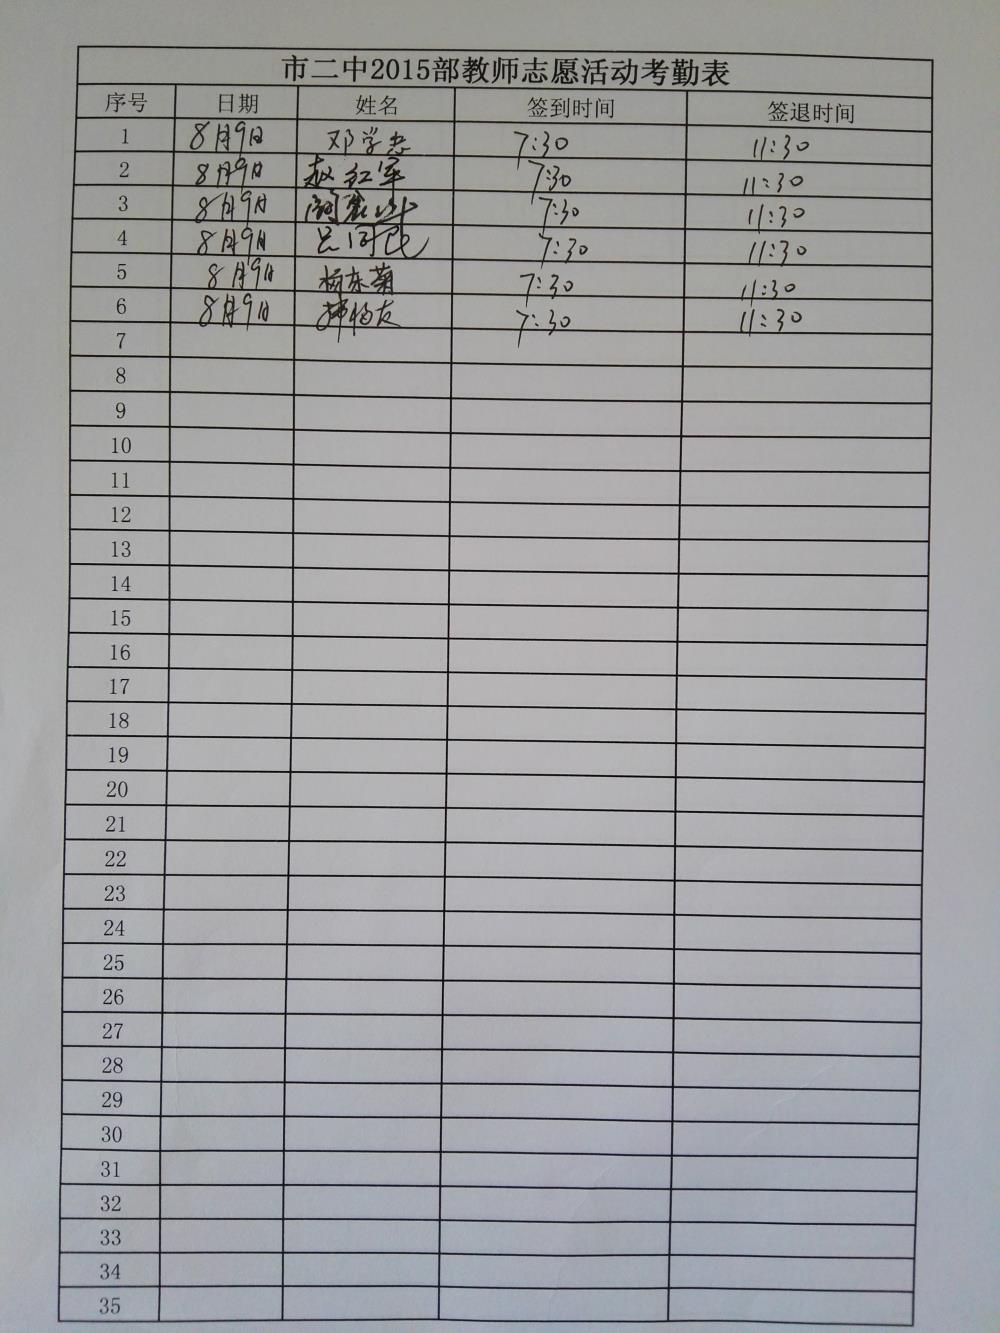 市二中2015部教师志愿活动考勤表
序号 日期 姓名 签到时间 签退时间
1 8月9日 邓学志 7:30 11:30
2 8月9日 赵红军 7:30 11:30
3 8月9日 7:30 11:30
4 8月9日 7:30 11:30
5 8月9日 杨东菊 7:30 11:30
6 8月9日 7:30 11:30
7
8
9
10
11
12
13
14
15
16
17
18
19
20
21
22
23
24
25
26
27
28
29
30
31
32
33
34
35